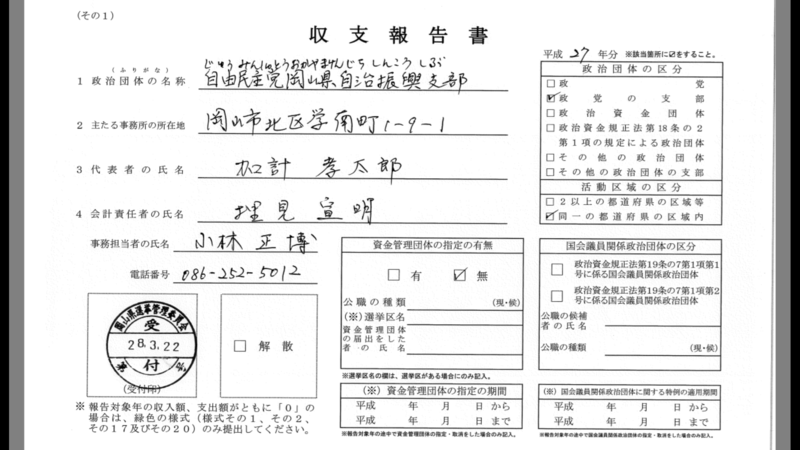 (その1)
収支報告書
平成 27 年分 ※該当箇所に☑をすること。
(ふりがな) じゆうみんしゅとうおかやまけんじちしんこうしぶ
1 政治団体の名称 自由民主党岡山県自治振興支部
2 主たる事務所の所在地 岡山市北区学南町1-9-1
3 代表者の氏名 加計 孝太郎
4 会計責任者の氏名 埋見 宣明
事務担当者の氏名 小林 正博
電話番号 086-252-5012
政治団体の区分
□政党
☑政党の支部
□政治資金団体
□政治資金規正法第18条の2
第1項の規定による政治団体
□その他の政治団体
□その他の政治団体の支部
活動区域の区分
□2以上の都道府県の区域等
☑同一の都道府県の区域内
岡山県選挙管理委員会
受
28.3.22
付
(受付印)
□ 解散
資金管理団体の指定の有無
□ 有 ☑ 無
公職の種類 (現・候)
(※)選挙区名
資金管理団体
の届出をした
者の氏名
※選挙区名の欄は、選挙区がある場合にのみ記入。
国会議員関係政治団体の区分
□ 政治資金規正法第19条の7第1項第1
号に係る国会議員関係政治団体
□ 政治資金規正法第19条の7第1項第2
号に係る国会議員関係政治団体
公職の候補
者の氏名
公職の種類 (現・候)
※ 報告対象年の収入額、支出額がともに「0」の
場合は、緑色の様式(様式その1、その2、
その17及びその20)のみ提出してください。
(※) 資金管理団体の指定の期間
平成 年 月 日 から
平成 年 月 日 まで
※報告対象年の途中で資金管理団体の指定・取消をした場合のみ記入。
(※) 国会議員関係政治団体に関する特例の適用期間
平成 年 月 日 から
平成 年 月 日 まで
※報告対象年の途中で国会議員関係政治団体の指定・取消をした場合のみ記入。